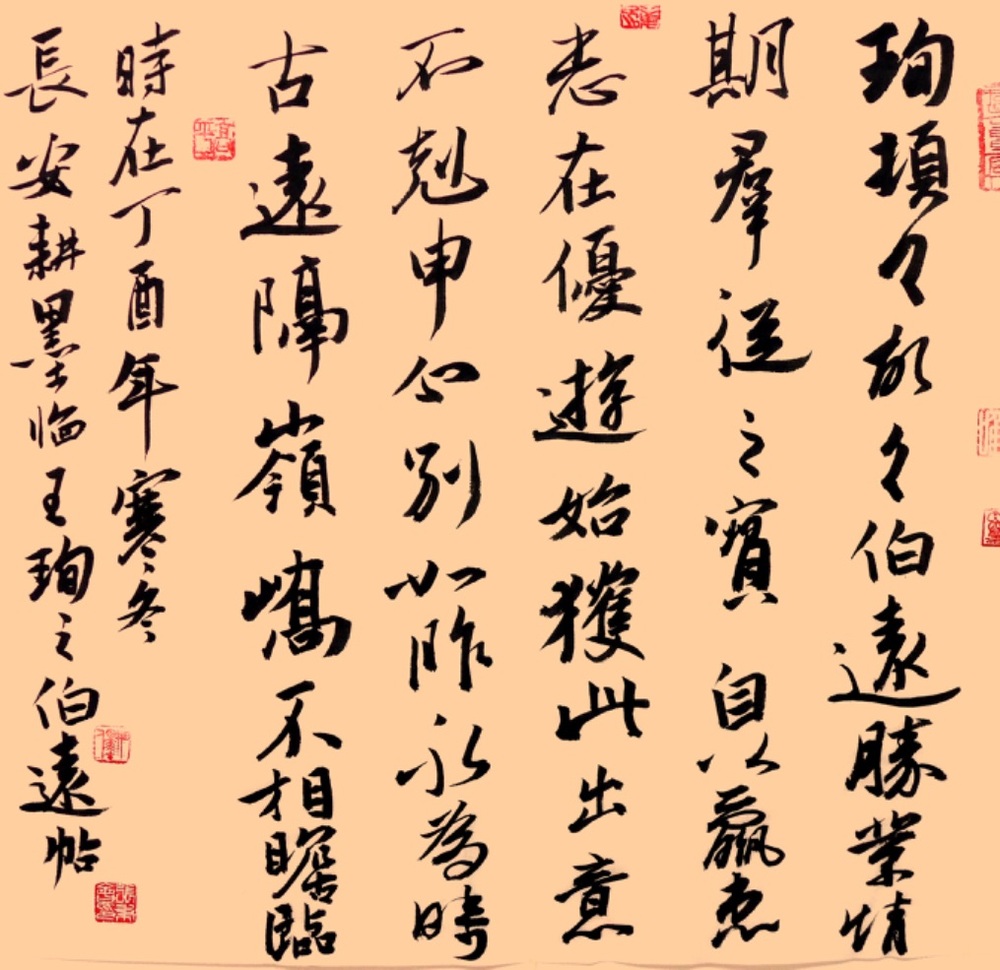 珣頓々首々伯遠勝業情
期羣從之寳自以羸患
志在優遊始獲此出意
不剋申分别如昨永為時
古遠隔嶺嶠不相瞻臨
時在丁酉年寒冬
長安耕墨临王珣之伯遠帖